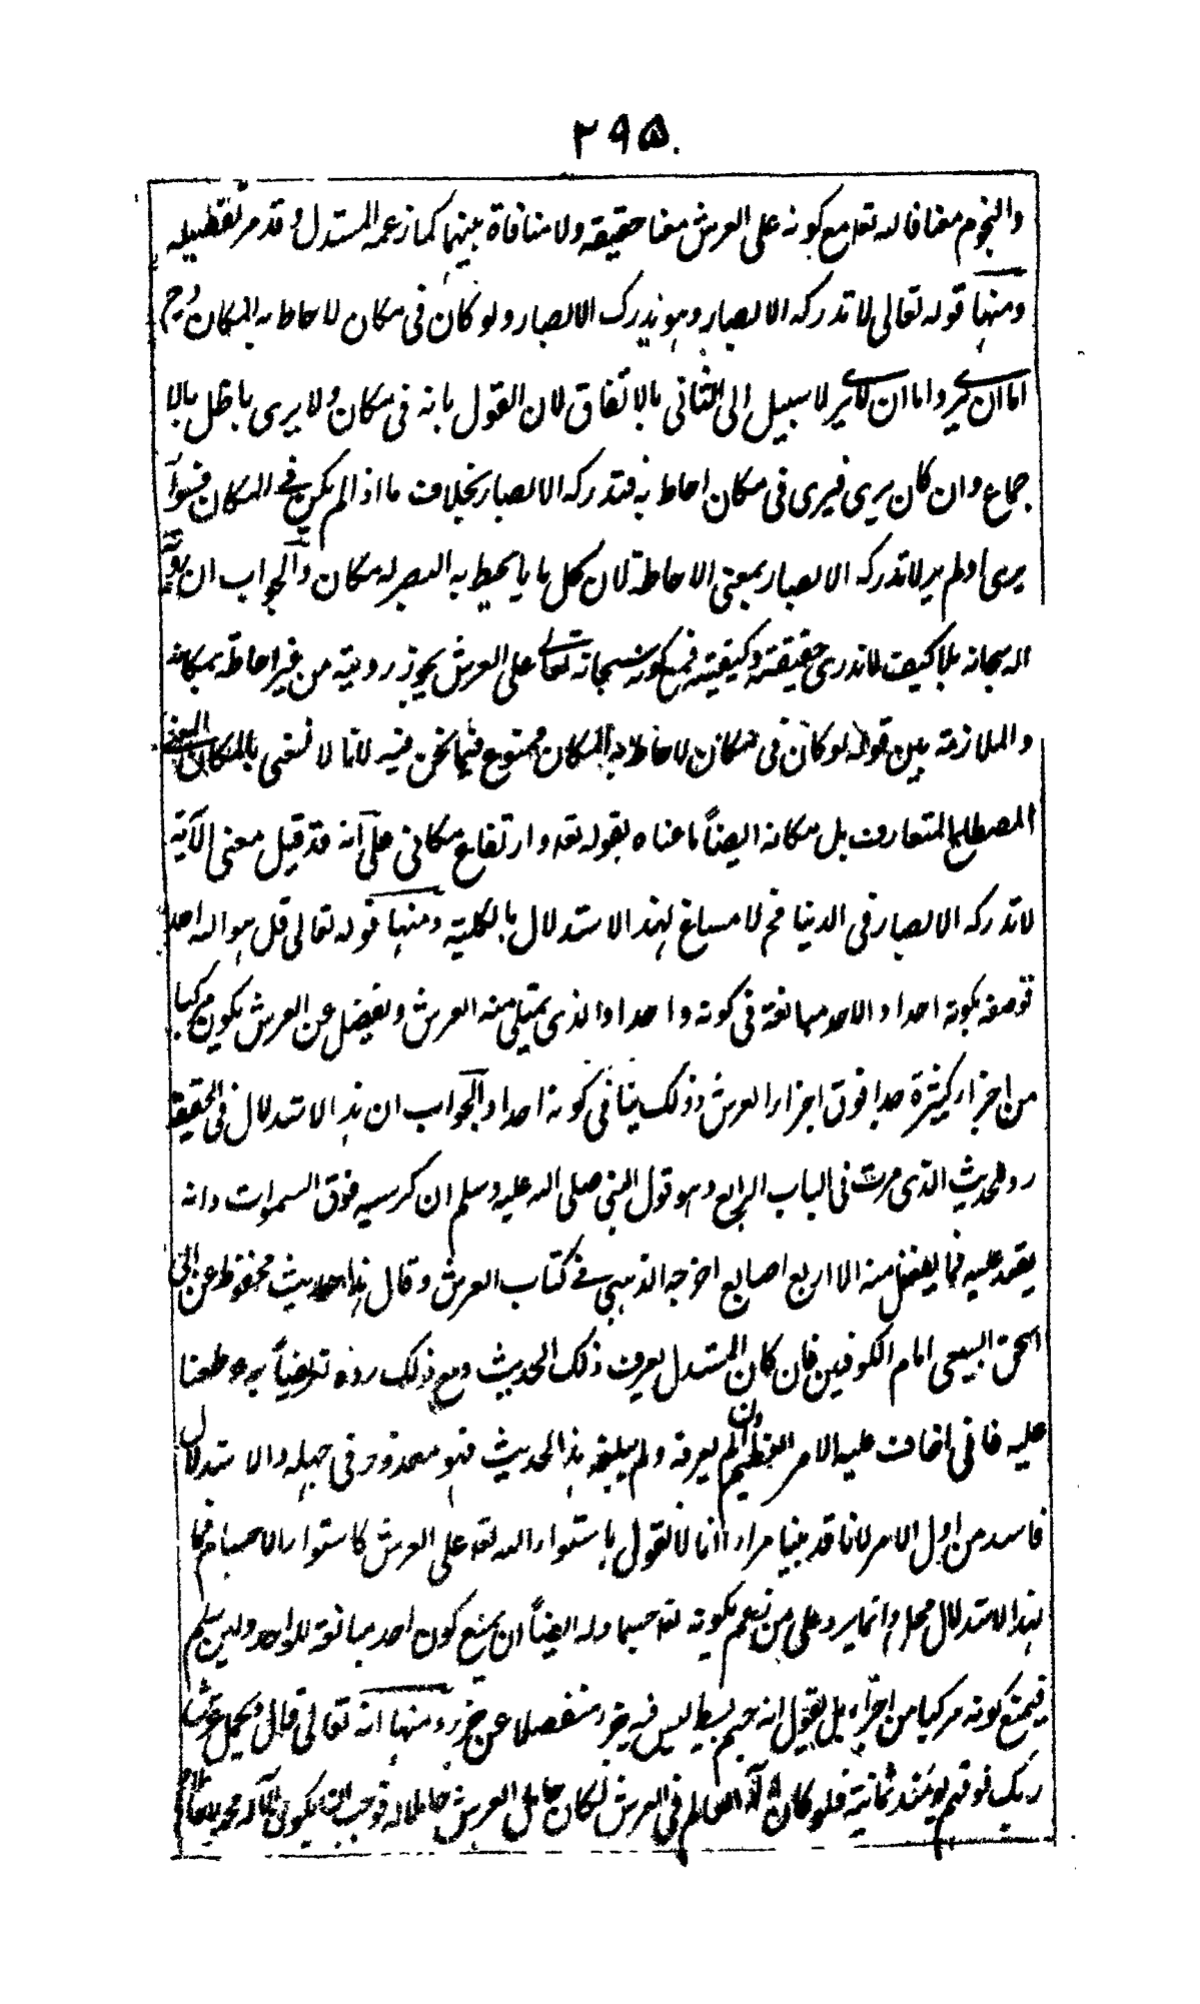 ٢٩٥
والنجوم مضافا له تعا مع كونه على العرش معنا حقيقة ولا منافاة بينهما كما زعمه المستدل وقد مر تفصيله
ومنها قوله تعالى لا تدركه الابصار وهو يدرك الابصار ولو كان فى مكان لاحاط به المكان وح
اما ان يرى واما ان لا يرى لا سبيل الى الثانى بالاتفاق لان القول بانه فى مكان ولا يرى باطل بالا
جماع وان كان يرى فيرى فى مكان احاط به فتدركه الابصار بخلاف ما اذا لم يكن فى المكان فسواء
يرى اولم ير لا تدركه الابصار بمعنى الاحاطة لان كل ما يحيط به البصر له مكان والجواب ان رؤية
الله سبحانه بلا كيف لا ندرى حقيقته وكيفيته فمع كونه سبحانه تعالى على العرش يجوز رويته من غير احاطة بمكانه
والملازمة بين قوله لو كان فى مكان لاحاط به المكان ممنوع فيما نحن فيه لانا لا نعنى بالمكان
المصطلح المتعارف بل مكانه ايضاً ما عناه بقوله تعه وارتفاع مكانى على انه قد قيل معنى الآية
لا تدركه الابصار فى الدنيا فح لا مساغ لهذا الاستدلال بالكلية ومنها قوله تعالى قل هو الله احد
فوصفه بكونه احدا والاحد مبالغة فى كونه واحدا والذى يمتلى منه العرش ويفضل عن العرش يكون مركبا
من اجزاء كثيرة جدا فوق اجزاء العرش وذلك ينافى كونه احدا والجواب ان هذا الاستدلال فى الحقيقة
رد لحديث الذى مرت فى الباب الرابع وهو قول النبى صلى الله عليه وسلم ان كرسيه فوق السموات وانه
يقعد عليه فما يفضل منه الا اربع اصابع اخرجه الذهبى فى كتاب العرش وقال هذا حديث محفوظ عن ابى
اسحق السبيعى امام الكوفين فان كان المستدل يعرف ذلك الحديث ومع ذلك رده تعريضاً به وطعنا
عليه فانى اخاف عليه الامر العظيم وان لم يعرفه ولم يبلغه هذا الحديث فهو معذور فى جهله والاستدلال
فاسد من اول الامر لانا قد بينا مرارا انا لا نقول باستواء الله تعه على العرش كاستواء الاجسام فما
لهذا الاستدلال محل وانما يرد على من زعم بكونه تعه جسما وله ايضاً ان يمنع كون احد مبالغة للواحد ولئن سلم
فيمنع كونه مركبا من اجزاء بل يقول انه جسم بسيط ليس فيه جزء منفصلا عن جزء ومنها انه تعالى قال ويحمل عرش
ربك فوقهم يومئذ ثمانية فلو كان اله العالم فى العرش لكان حامل العرش حاملا له فوجب ان يكون الاله محمولا